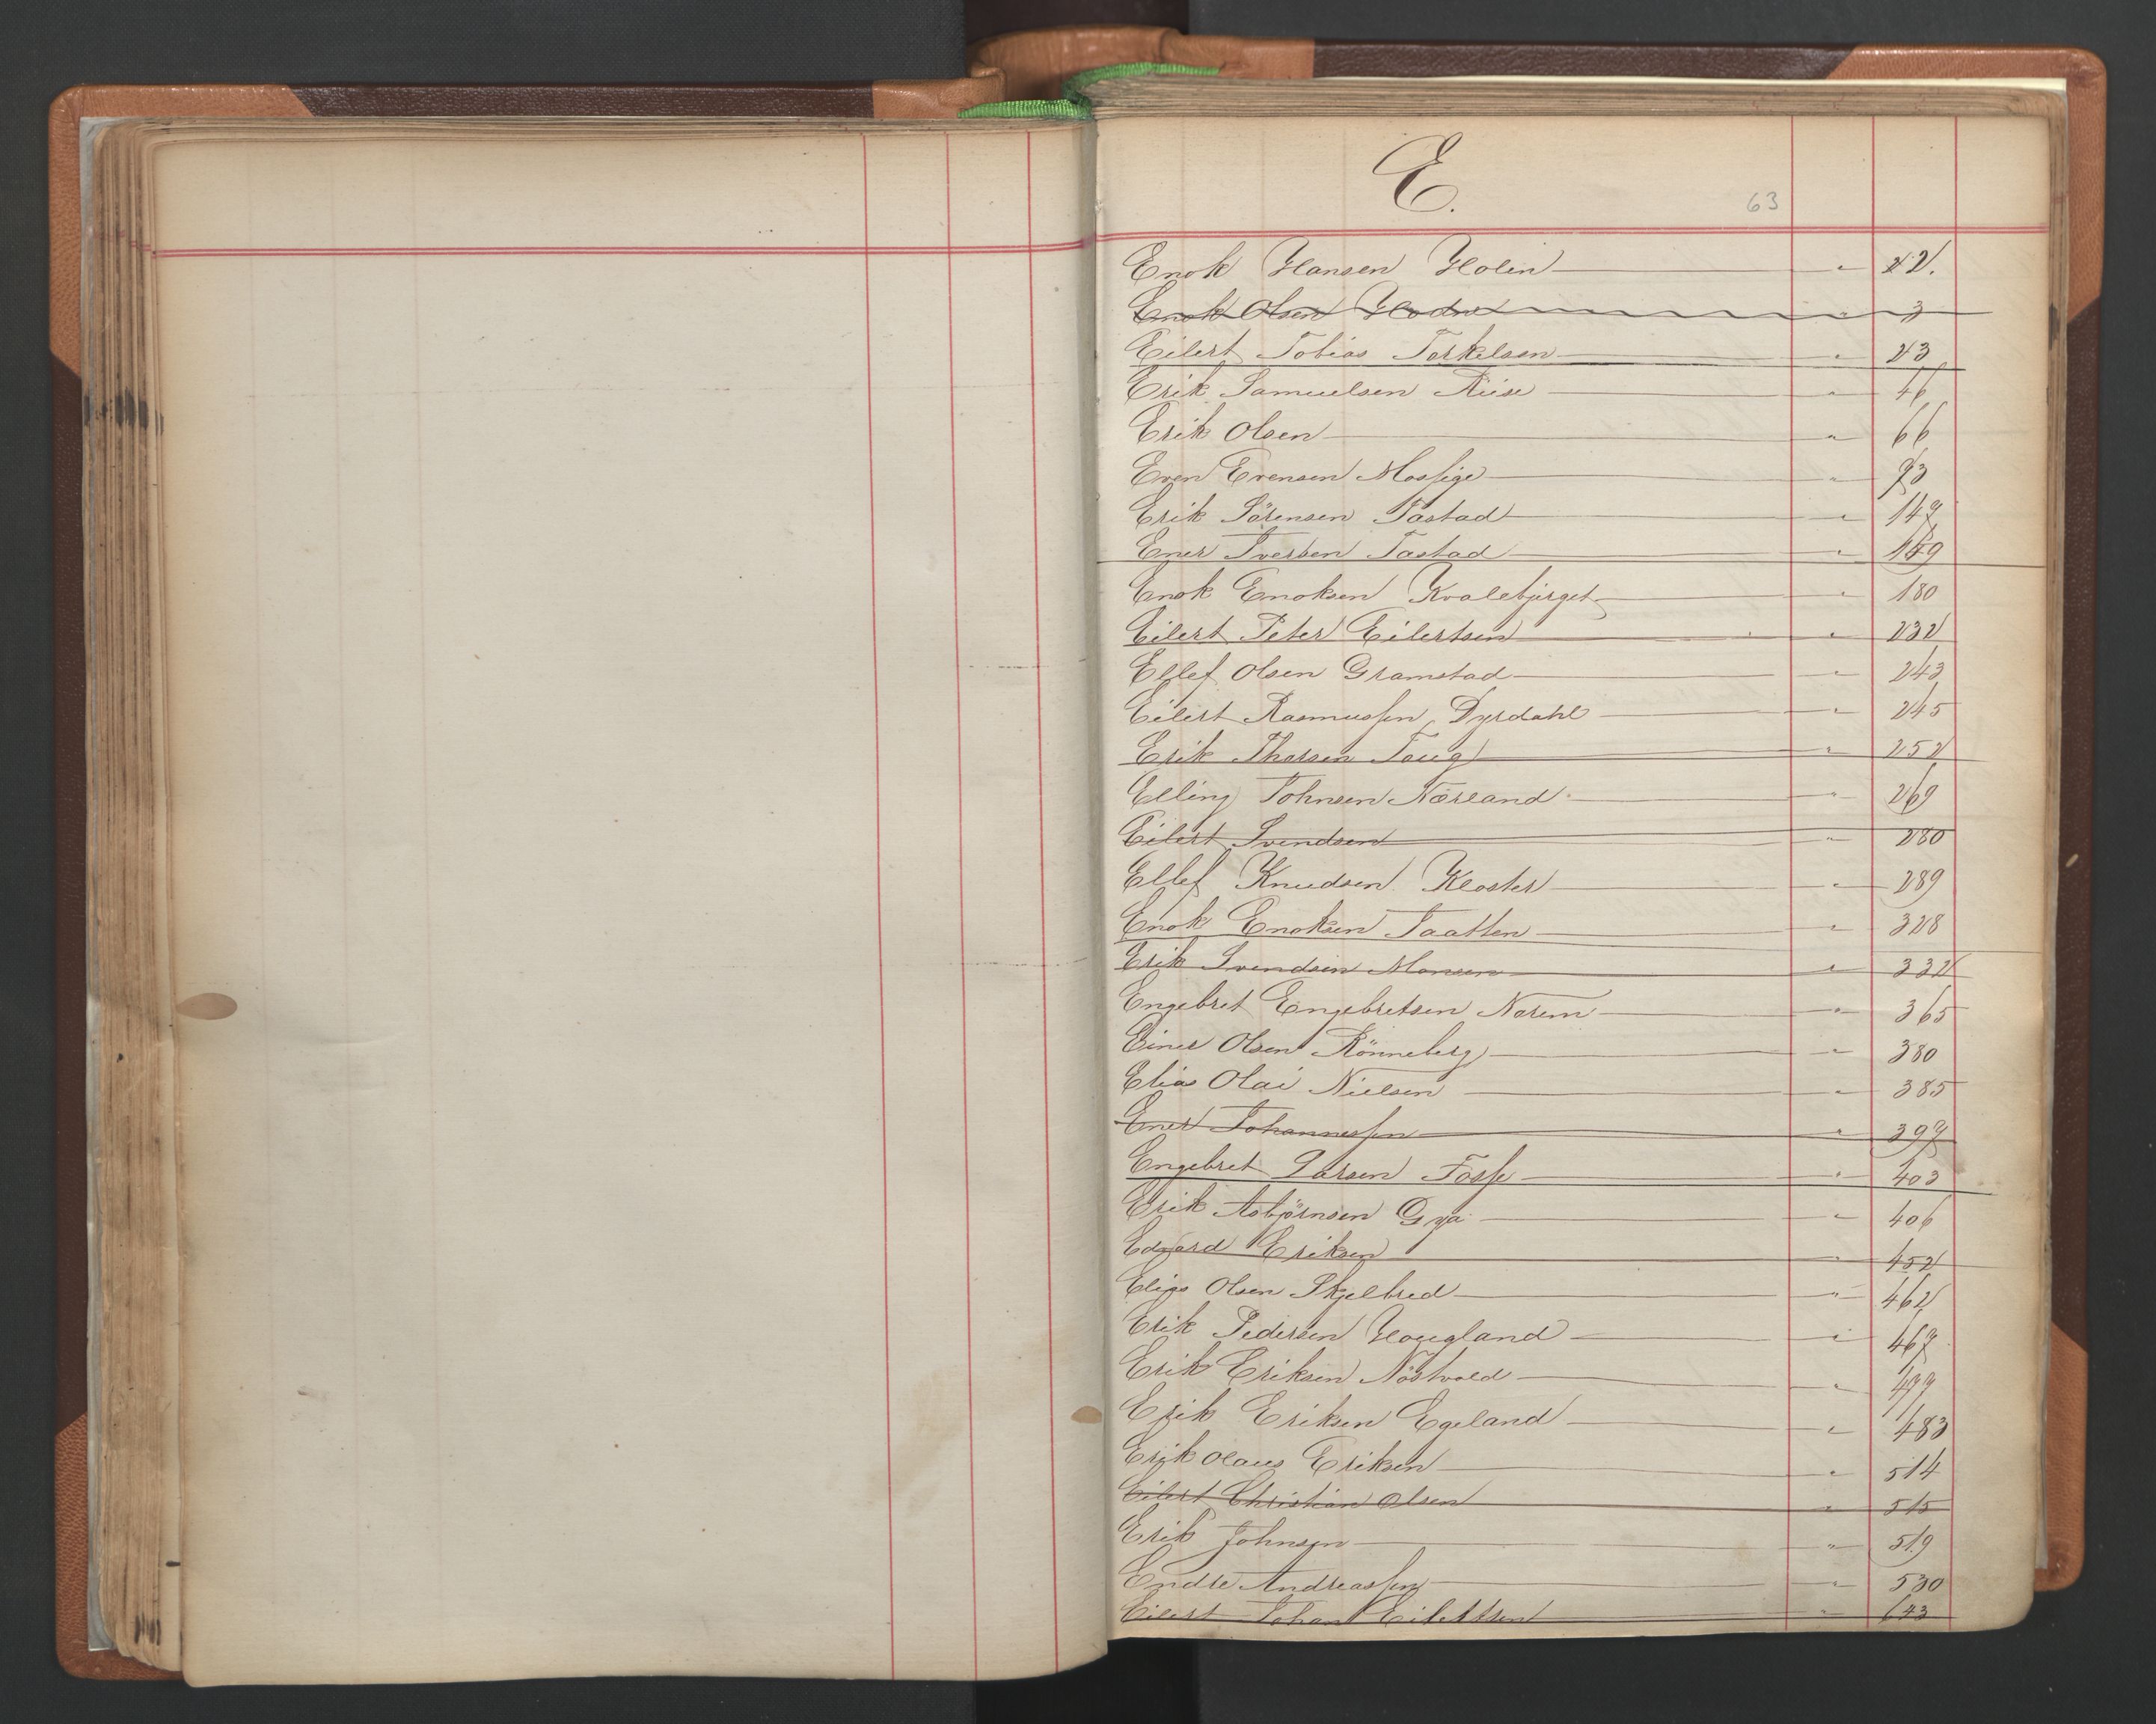 E.
63
Enok Hansen Holen " 22.
Enok Olsen Hodne " 3
Eilert Tobias Torkelsen " 23
Erik Samuelsen Riise " 46
Erik Olsen " 66
Even Evensen Mossige " 93
Erik Sörensen Tastad " 147
Ener Iversen Tastad " 169
Enok Enoksen Kvalebjerget " 180
Eilert Peter Eilertsen " 232
Ellef Olsen Gramstad " 243
Eilert Rasmussen Dyrdahl " 245
Erik Thorsen Toug " 252
Elling Johnsen Nærland " 269
Eilert Svendsen " 280
Ellef Knudsen Kloster " 289
Enok Enoksen Taatten " 328
Erik Svendsen Monsen " 332
Engebret Engebretsen Norem " 365
Einer Olsen Rönneberg " 380
Elias Olai Nielsen " 385
Ener Johannessen " 397
Engebret Larsen Fosse " 403
Erik Asbjörnsen Gya " 406
Edvard Eriksen " 452
Elias Olsen Skjelbred " 462
Erik Pedersen Hougland " 467
Erik Eriksen Nöstvold " 477
Erik Eriksen Egeland " 483
Erik Olaus Eriksen " 514
Eilert Christian Olsen " 515
Erik Johnsen " 519
Endre Andreassen " 530
Eilert Johan Eilertsen " 643